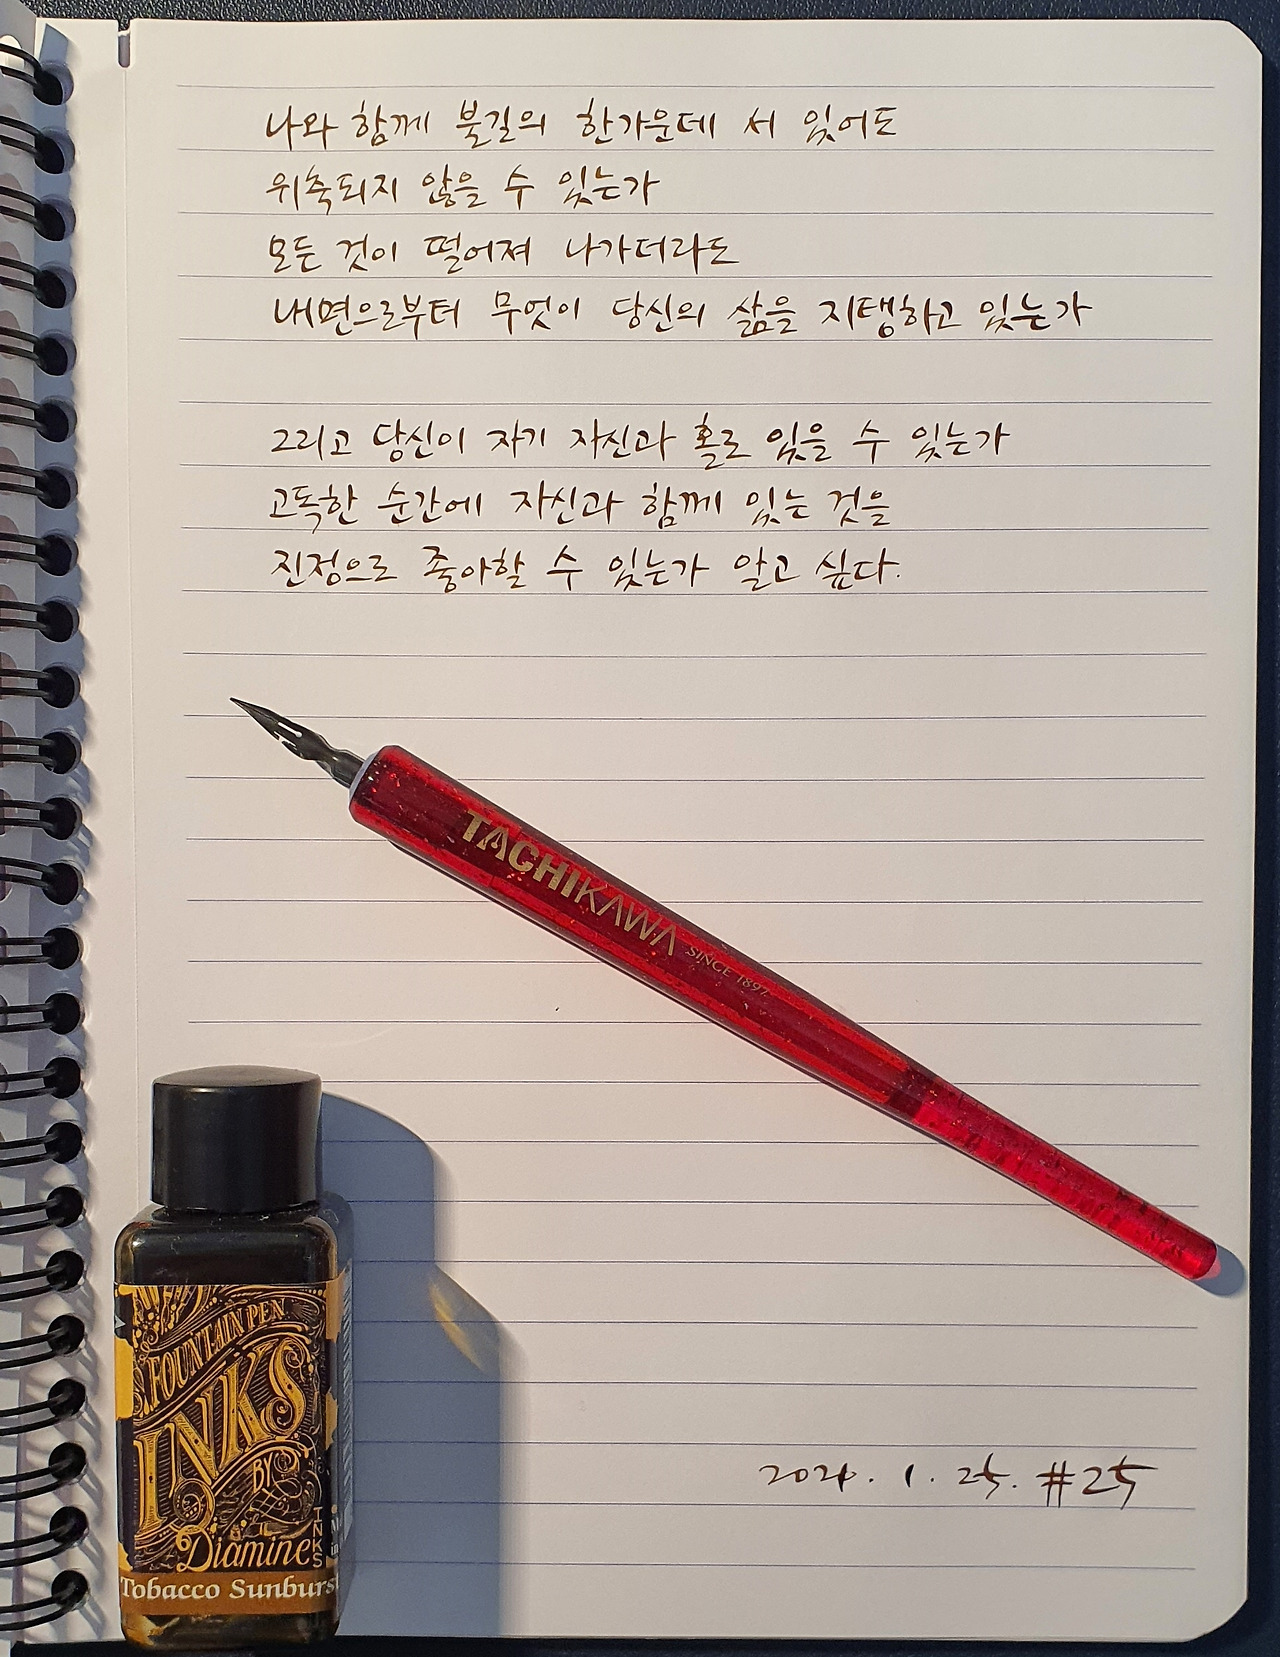 나와 함께 불길의 한가운데 서 있어도
위축되지 않을 수 있는가
모든 것이 떨어져 나가더라도
내면으로부터 무엇이 당신의 삶을 지탱하고 있는가
그리고 당신이 자기 자신과 홀로 있을 수 있는가
고독한 순간에 자신과 함께 있는 것을
진정으로 좋아할 수 있는가 알고 싶다.
TACHIKAWA SINCE 1897
FOUNTAIN PEN
INKS
BY
Diamine
INKS
Tobacco Sunburst
1. 25. #25